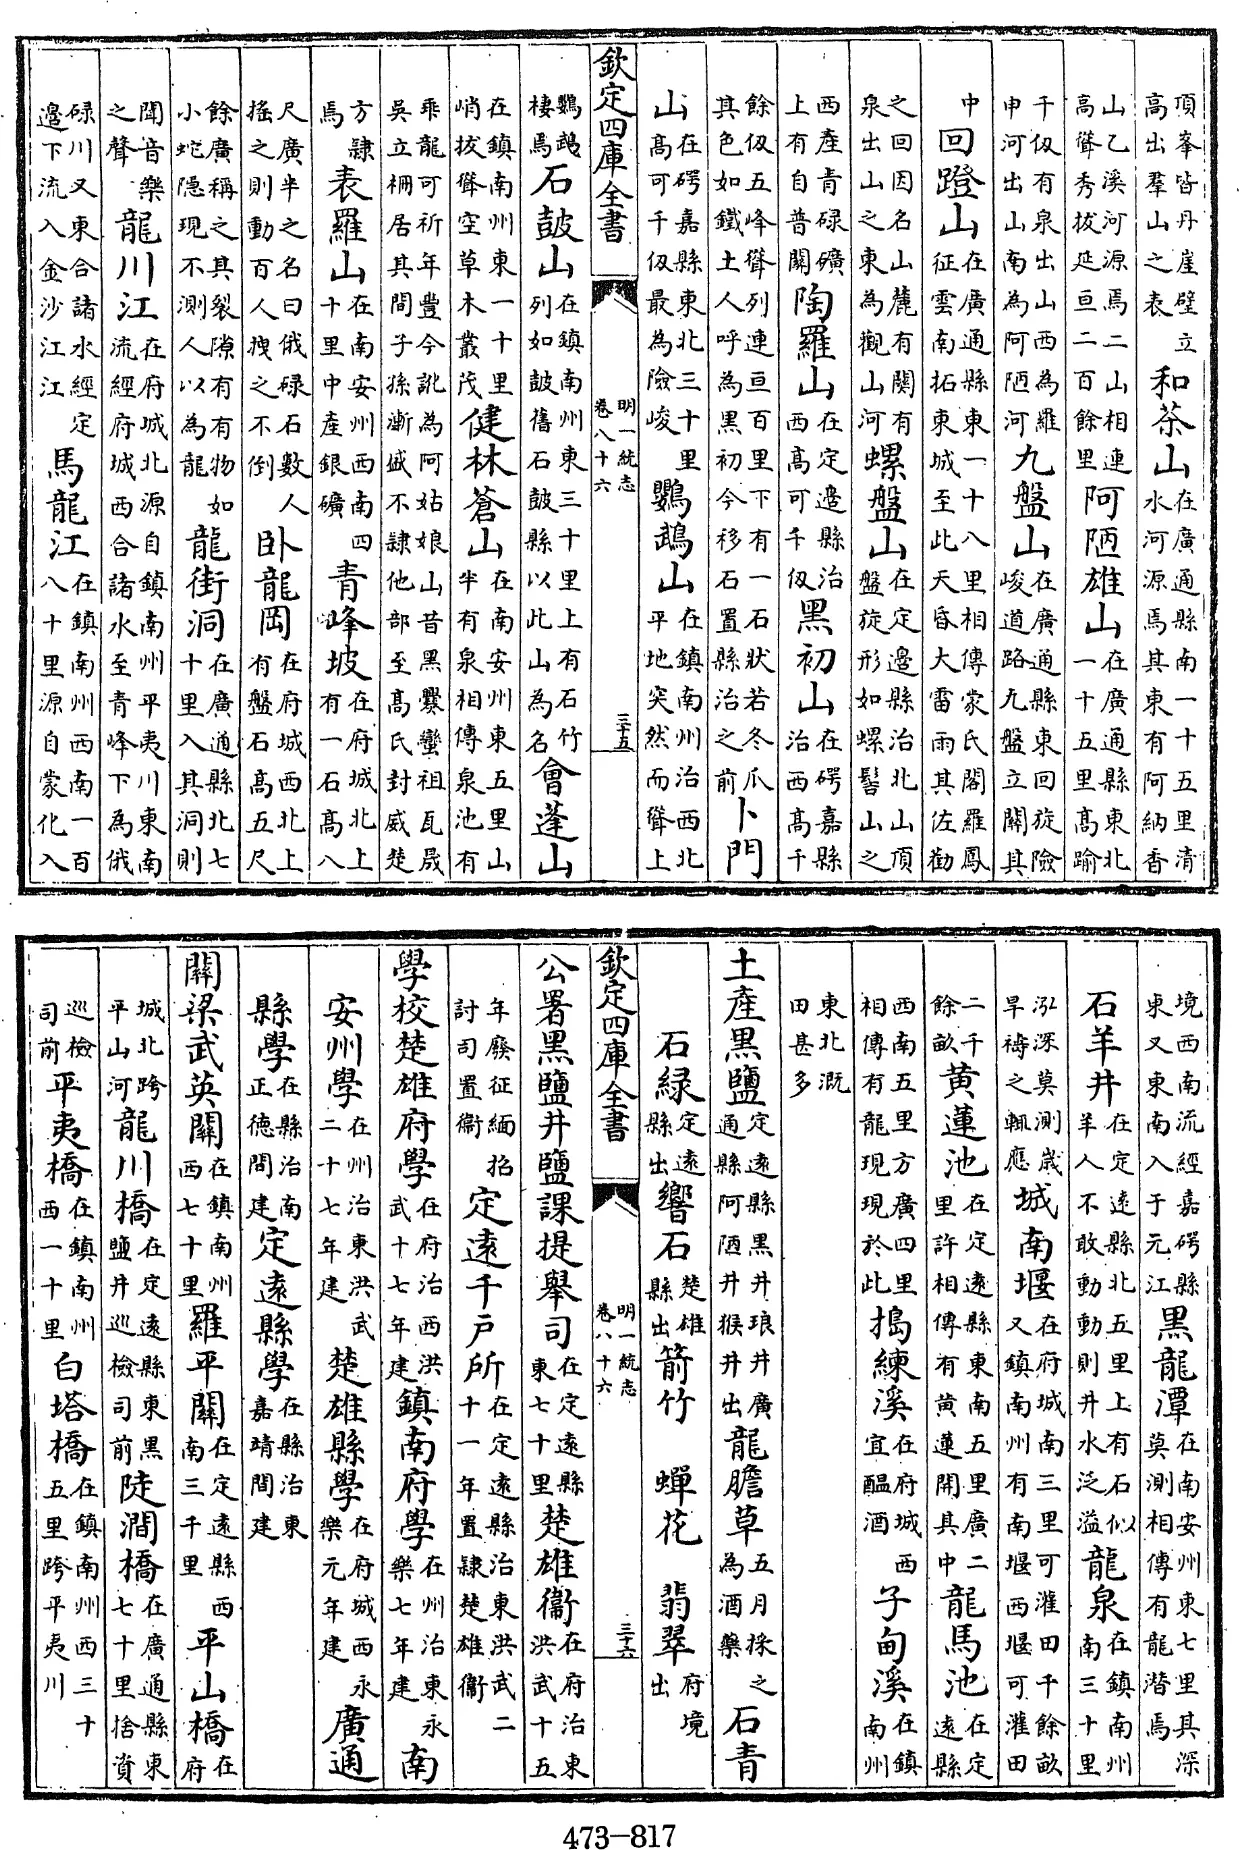 頂峯皆丹崖壁立高出羣山之表和茶山在廣通縣南一十五里清水河源焉其東有阿納香
山乙溪河源焉二山相連高聳秀拔延亘二百餘里阿陋雄山在廣通縣東北一十五里高踰
千仭有泉出山西為羅申河出山南為阿陋河九盤山在廣通縣東回旋險峻道路九盤立關其
中回蹬山在廣通縣東一十八里相傳蒙氏閣羅鳳征雲南拓東城至此天昏大雷雨其佐勸
之回因名山麓有關有泉出山之東為觀山河螺盤山在定邊縣治北山頂盤旋形如螺髻山之
西產青碌礦上有自普關陶羅山在定邊縣治西高可千仭黑初山在碍嘉縣治西高千
餘仭五峰聳列連亘百里下有一石狀若冬爪其色如鐵土人呼為黑初今移石置縣治之前卜門
山在碍嘉縣東北三十里高可千仭最為險峻鸚鵡山在鎮南州治西北平地突然而聳上
欽定四庫全書 明一統志 卷八十六 三十五
鸚鵡棲焉石鼓山在鎮南州東三十里上有石竹列如鼓舊石鼓縣以此山為名會蓬山
在鎮南州東一十里峭拔聳空草木叢茂健林蒼山在南安州東五里山半有泉相傳泉池有
乖龍可祈年豐今訛為阿姑娘山昔黑爨蠻祖瓦晟吳立柵居其間子孫漸盛不隸他部至高氏封威楚
方隸焉表羅山在南安州西南四十里中產銀礦青峰坡在府城北上有一石高八
尺廣半之名曰俄碌石數人搖之則動百人拽之不倒卧龍岡在府城西北上有盤石高五尺
餘廣稱之其裂隙有有物如小蛇隱現不測人以為龍龍街洞在廣通縣北七十里入其洞則
聞音樂之聲龍川江在府城北源自鎮南州平夷川東南流經府城西合諸水至青峰下為俄
碌川又東合諸水經定邊下流入金沙江江馬龍江在鎮南州西南一百八十里源自蒙化入
境西南流經嘉碍縣東又東南入于元江黑龍潭在南安州東七里其深莫測相傳有龍潛焉
石羊井在定遠縣北五里上有石似羊人不敢動動則井水泛溢龍泉在鎮南州南三十里
泓深莫測歲旱禱之輒應城南堰在府城南三里可灌田千餘畝又鎮南州有南堰西堰可灌田
二千餘畝黄蓮池在定遠縣東南五里廣二里許相傳有黄蓮開其中龍馬池在定遠縣
西南五里方廣四里相傳有龍現現於此搗練溪在府城西宜醞酒子甸溪在鎮南州
東北溉田甚多
土產黑鹽定遠縣黑井琅井廣通縣阿陋井猴井出龍膽草五月採之為酒藥石青
石緑定遠縣出響石楚雄縣出箭竹 蟬花 翡翠府境出
欽定四庫全書 明一統志 卷八十六 三十六
公署黑鹽井鹽課提舉司在定遠縣東七十里楚雄衞在府治東洪武十五
年廢征緬招討司置衞定遠千戸所在定遠縣治東洪武二十一年置隸楚雄衞
學校楚雄府學在府治西洪武十七年建鎮南府學在州治東永樂七年建南
安州學在州治東洪武二十七年建楚雄縣學在府城西永樂元年建廣通
縣學在縣治南正德間建定遠縣學在縣治東嘉靖間建
關梁武英關在鎮南州西七十里羅平關在定遠縣西南三千里平山橋在府
城北跨平山河龍川橋在定遠縣東黑鹽井巡檢司前陡澗橋在廣通縣東七十里捨資
巡檢司前平夷橋在鎮南州西一十里白塔橋在鎮南州西三十五里跨平夷川
473-817